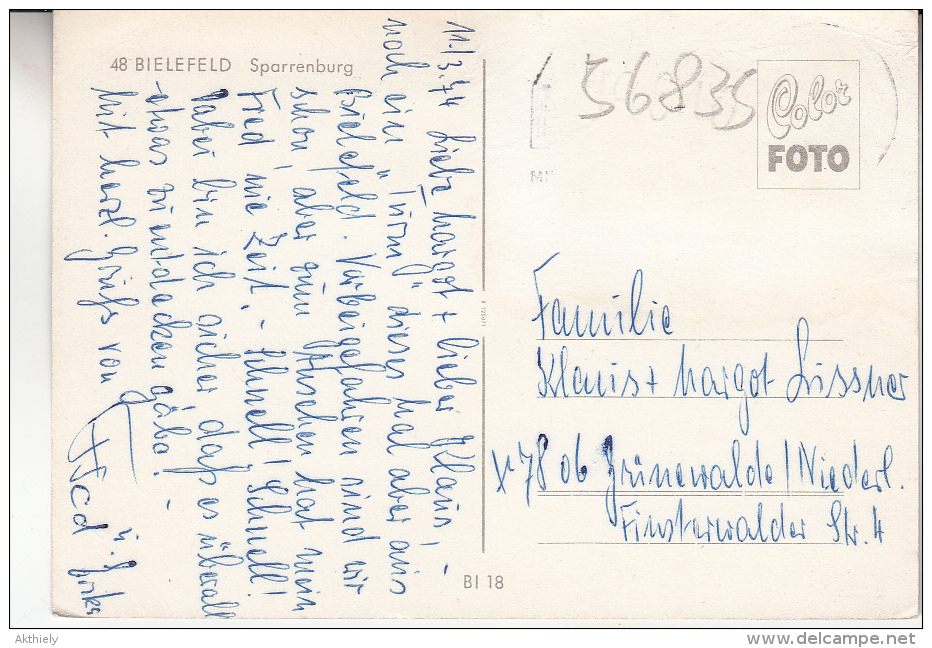 48 BIELEFELD Sparrenburg
11.3.74 Liebe Margot + lieber Klaus, -
noch ein "Turm" dieses Mal aber aus
Bielefeld. Vorbeigefahren sind wir
schon, aber zum Ansehen hat mein
Fred nie Zeit, - Schnell! Schnell!
Dabei bin ich sicher daß es überall
etwas zu entdecken gäbe! -
Mit herzl. Grüß von
Fred u.
56835
Color
FOTO
Familie
Klaus + Margot Lissner
x 78 06 Grünewalde / Niederl.
Finsterwalder Str. 4
BI 18
Akthiely
www.delcampe.net